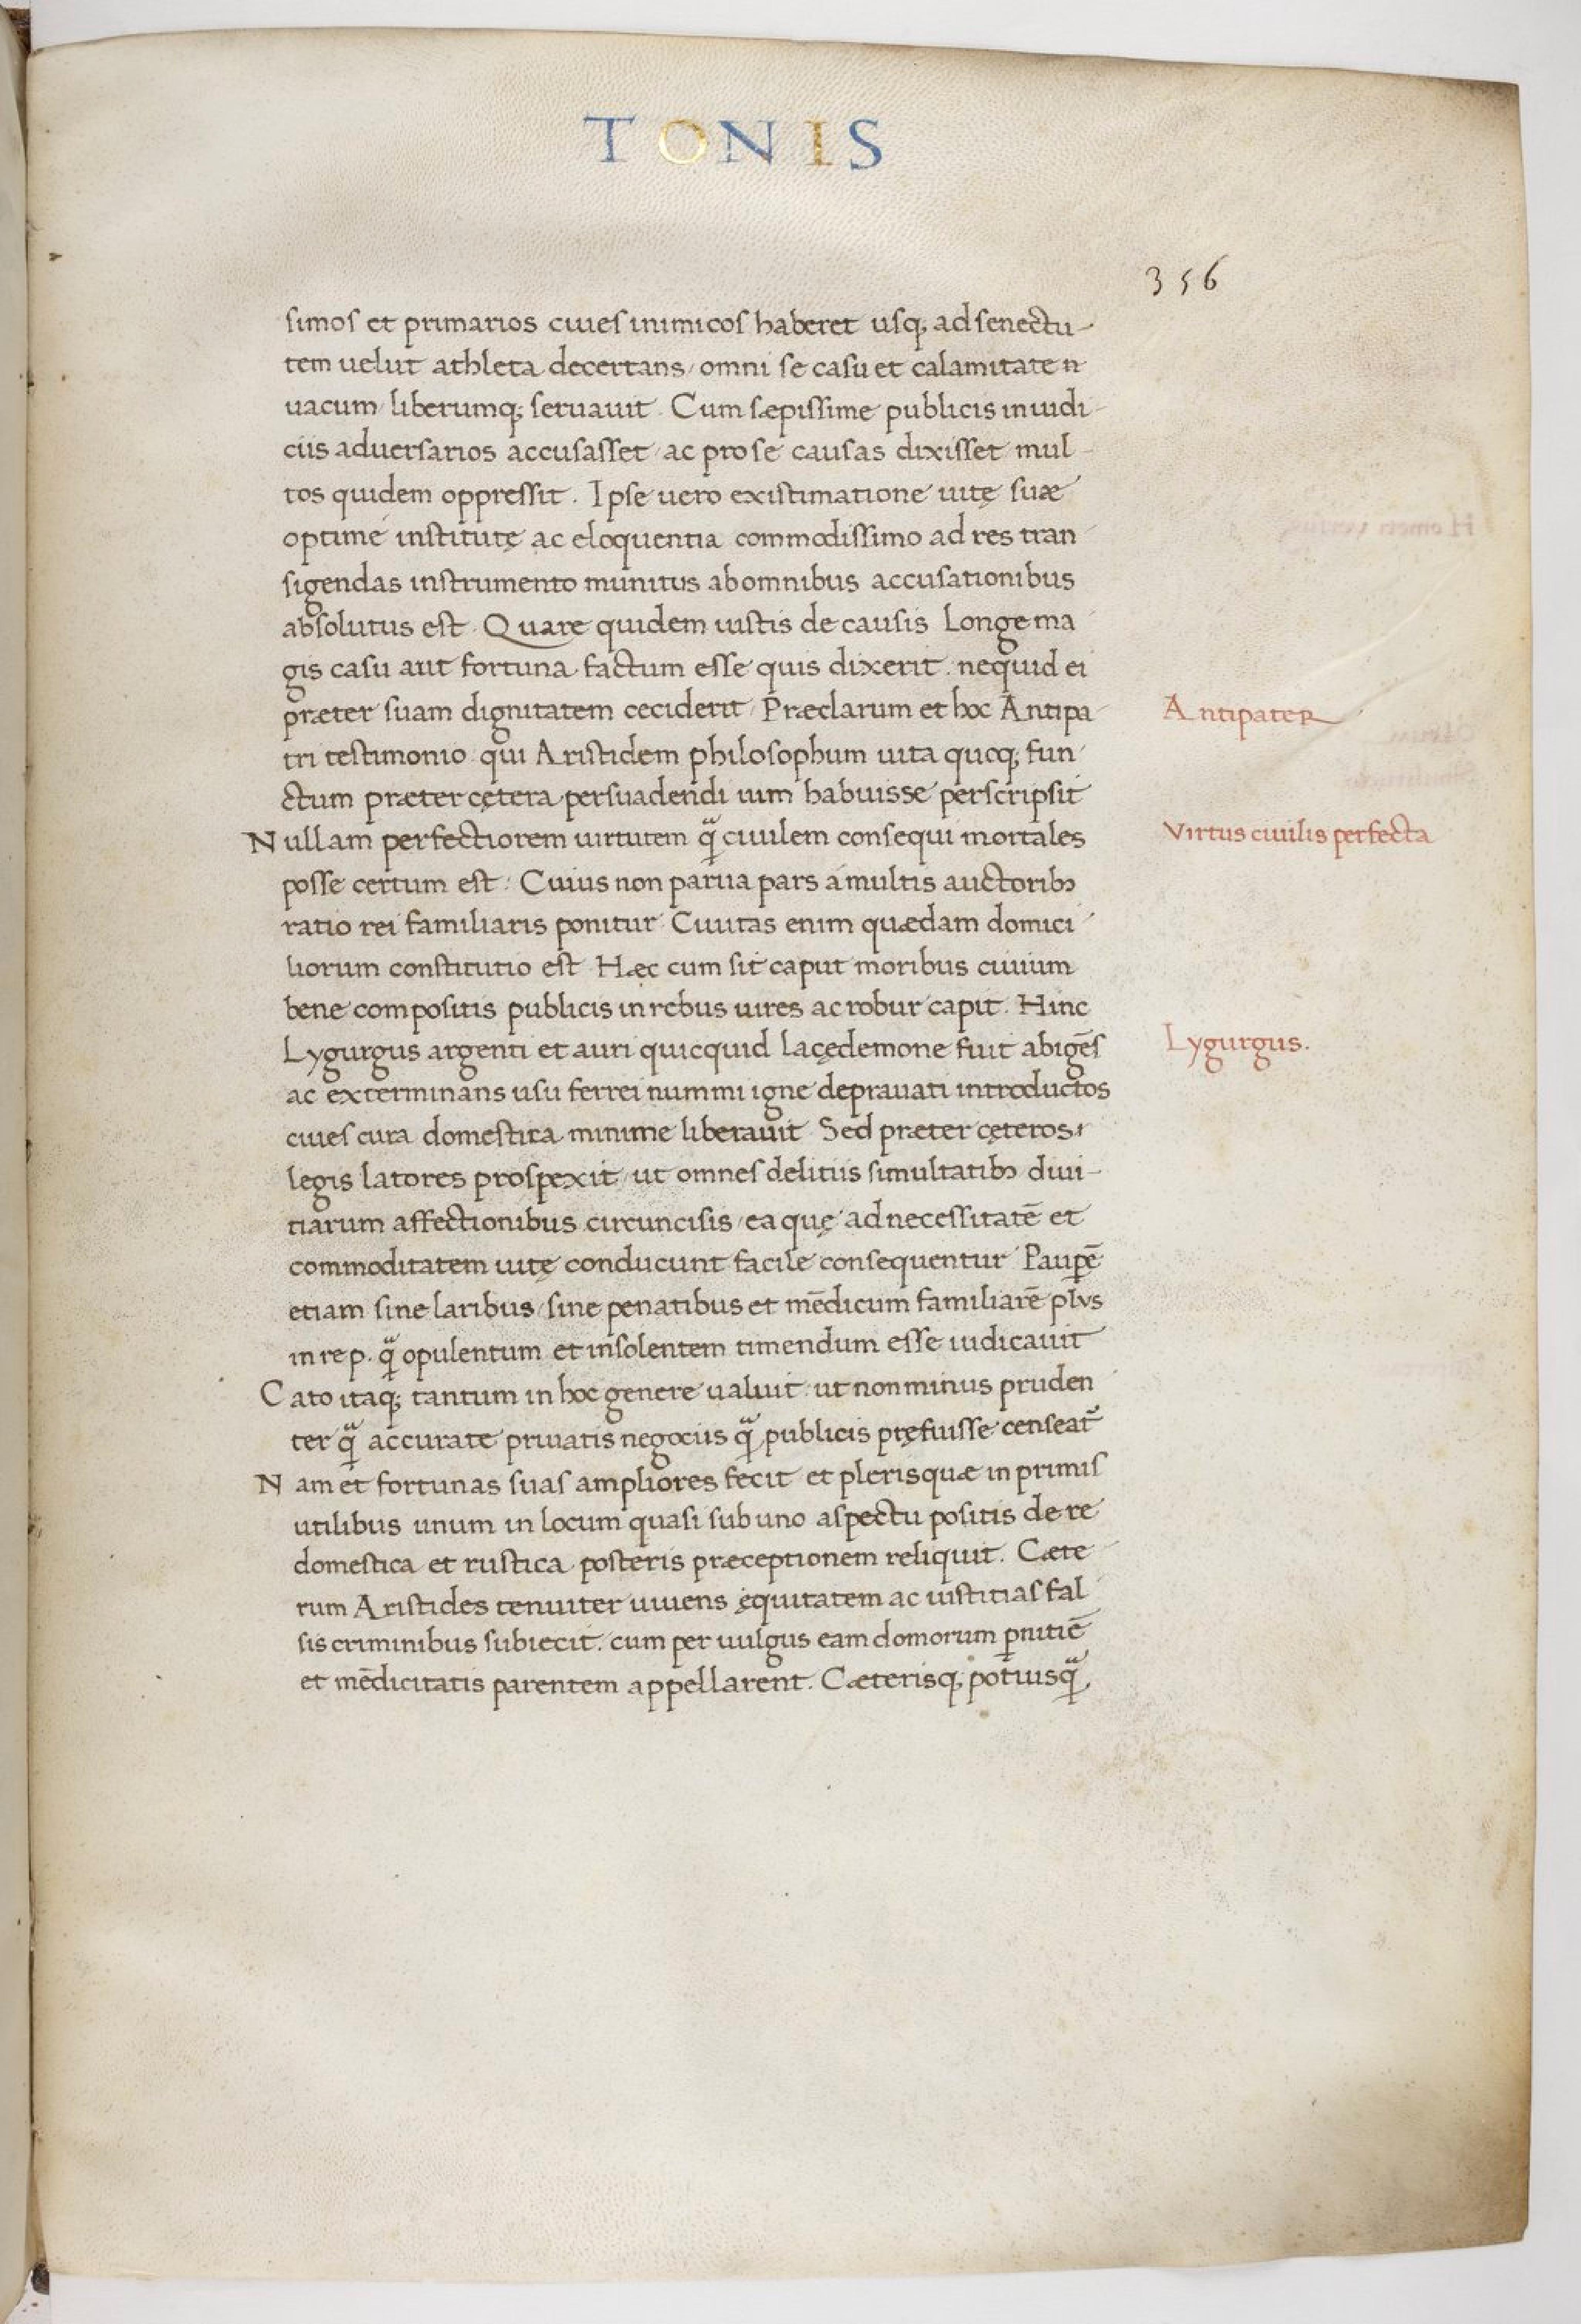 TONIS
356
simos et primarios ciues inimicos haberet usq; ad senectu-
tem uelut athleta decertans / omni se casu et calamitate
uacum liberumq; seruauit. Cum sæpissime publicis in iudi-
ciis aduersarios accusasset / ac pro se causas dixisset mul-
tos quidem oppressit. Ipse uero existimatione uitę suæ
optime institutę ac eloquentia commodissimo ad res tran
sigendas instrumento munitus ab omnibus accusationibus
absolutus est. Quare quidem iustis de causis Longe ma
gis casu aut fortuna factum esse quis dixerit. nequid ei
præter suam dignitatem ceciderit / Præclarum et hoc Antipa
Antipater
tri testimonio qui Aristidem philosophum uita quoq; fun
ctum præter cętera persuadendi uim habuisse perscripsit
Nullam perfectiorem uirtutem q̃ ciuilem consequi mortales
Virtus ciuilis perfecta
posse certum est. Cuius non parua pars a multis auctorib&#x9;ꝫ
ratio rei familiaris ponitur. Ciuitas enim quædam domici
liorum constitutio est. Hæc cum sit caput moribus ciuium
bene compositis publicis in rebus uires ac robur capit. Hinc
Lygurgus argenti et auri quicquid lacędemone fuit abigẽs
Lygurgus.
ac exterminans usu ferrei nummi igne deprauati introductos
ciues cura domestica minime liberauit. Sed præter cęteros
legis latores prospexit / ut omnes delitiis simultatibꝫ diui-
tiarum affectionibus circuncisis / ea quę ad necessitatẽ et
commoditatem uitę conducunt facile consequentur. Paupẽ
etiam sine laribus / sine penatibus et mẽdicum familiarẽ plus
in re p. q̃ opulentum et insolentem timendum esse iudicauit
Cato itaq; tantum in hoc genere ualuit ut non minus pruden
ter q̃ accurate priuatis negociis q̃ publicis pręfuisse censeat᷑
Nam et fortunas suas ampliores fecit et plerisquæ in primis
utilibus unum in locum quasi sub uno aspectu positis de re
domestica et rustica posteris præceptionem reliquit. Cæte
rum Aristides tenuiter uiuens ęquitatem ac iustitias fal
sis criminibus subiecit. cum per uulgus eam domorum ꝑnitiẽ
et mẽdicitatis parentem appellarent. Cæterisq; potiusq̃